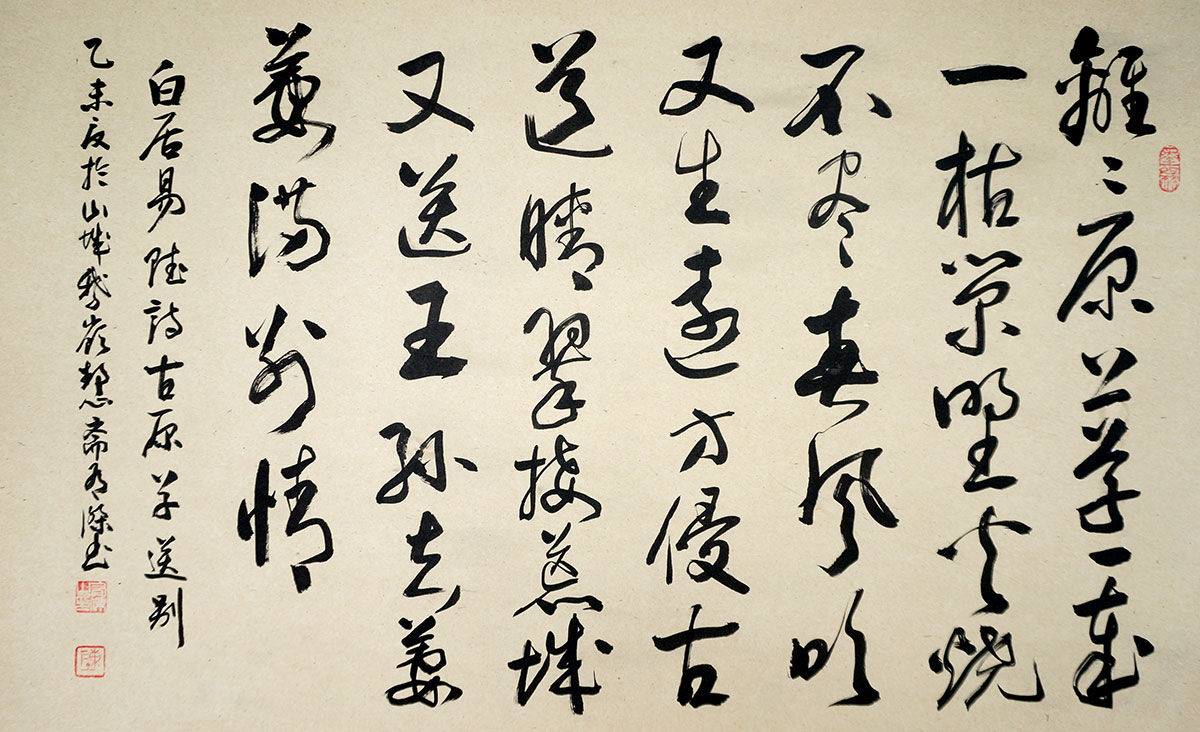 離〻原上草一歲
一枯榮野火燒
不尽春風吹
又生遠芳侵古
道晴翠接荒城
又送王孫去萋
萋滿別情
白居易詩古原草送別
乙未夏於山城鵝嶺